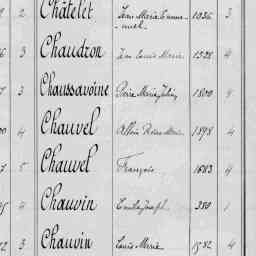 2 Châtelet Jean Marie Emma- 1036 3
nuel
3 Chaudron Jean Louis Marie 1528 4
3 Chaussavoine Pierre Marie Julien 1800 4
4 Chauvel Albin Pierre Marie 1898 4
5 Chauvel François 1683 4
4 Chauvin Emile Joseph 380 1
2 3 Chauvin Louis Marie 1582 4